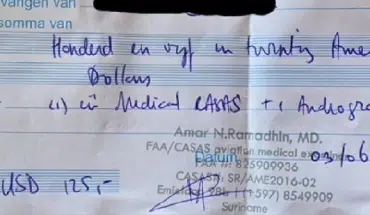 vangen van
somma van
Honderd en vyf en twintig Ame
Dollars
(1) en Medical CASAS + 1 Androgra
Amar N.Ramadhin, MD.
FAA/CASAS aviation medical ex
FAA 825909936
Datum 03/06
CASAS SR/AME2016-02
USD 125,-
(+597) 8549909
Suriname